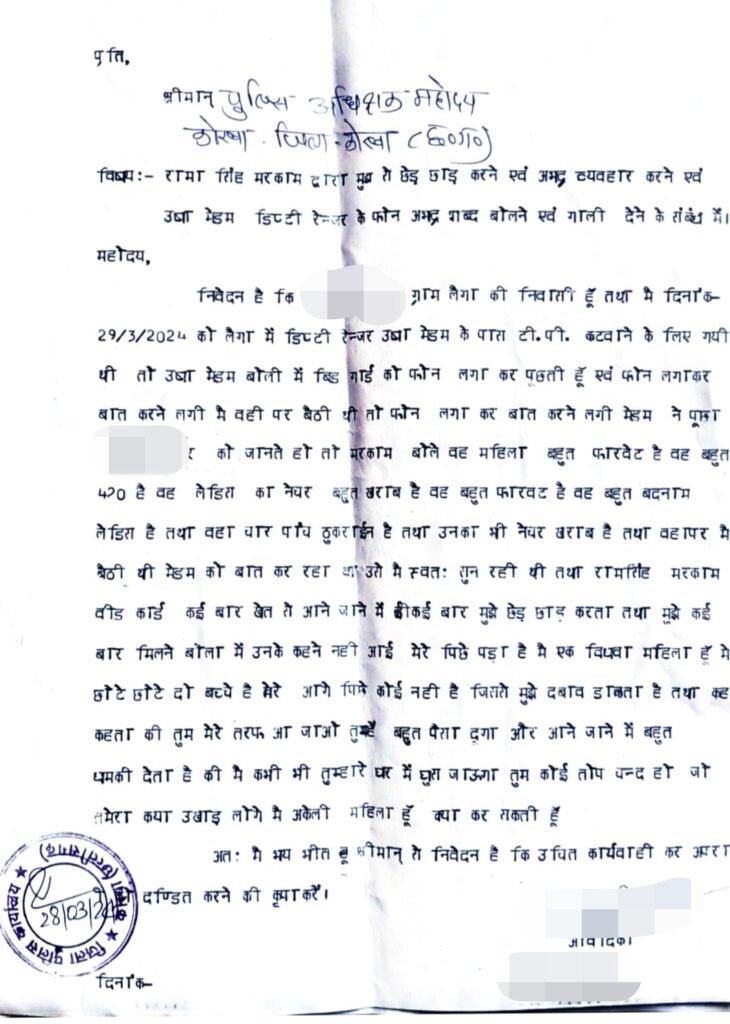 प्रति,
श्रीमान् पुलिस अधिक्षक महोदय
कोरबा जिला-कोरबा (छ०ग०)
विषय:- रामा सिंह मरकाम द्वारा मुझ से छेड़ छाड़ करने एवं अभद्र व्यवहार करने एवं
उषा मेडम डिप्टी रेन्जर के फोन अभद्र शब्द बोलने एवं गाली देने के संबंध में।
महोदय,
निवेदन है कि ग्राम लैगा की निवासी हूँ तथा मै दिनांक-
29/3/2024 को लैगा में डिप्टी रेन्जर उषा मेडम के पास टी.पी. कटवाने के लिए गयी
थी तो उषा मेडम बोली में बिड गार्ड को फोन लगा कर पूछती हूँ एवं फोन लगाकर
बात करने लगी मै वही पर बैठी थी तो फोन लगा कर बात करने लगी मेडम ने पूछा
र को जानते हो तो मरकाम बोले वह महिला बहुत फारवेट है वह बहुत
420 है वह लेडिस का नेचर बहुत खराब है वह बहुत फारवट है वह बहुत बदनाम
लेडिस है तथा वहा चार पाँच ठुकराईन है तथा उनका भी नेचर खराब है तथा वहापर मै
बैठी थी मेडम को बात कर रहा था उसे मै स्वतः सुन रही थी तथा रामसिंह मरकाम
वीड कार्ड कई बार खेत से आने जाने में हीकई बार मुझे छेड़ छाड़ करता तथा मुझे कई
बार मिलने बोला में उनके कहने नही आई मेरे पिछे पड़ा है मै एक विधवा महिला हूँ मे
छोटे छोटे दो बच्चे है मेरे आगे पिछे कोई नही है जिससे मुझे दबाव डालता है तथा कह
कहता की तुम मेरे तरफ आ जाओ तुम्हे बहुत पैसा दूगा और आने जाने में बहुत
धमकी देता है की मै कभी भी तुम्हारे घर में घुस जाऊगा तुम कोई तोप चन्द हो जो
तमेरा कया उखाड़ लोगे मै अकेली महिला हूँ क्या कर सकती हूँ
अतः मै भय भीत हू श्रीमान् से निवेदन है कि उचित कार्यवाही कर अपरा
दण्डित करने की कृपा करें।
जिला पुलिस कार्यालय
(छत्तीसगढ़)
28/03/24
आवेदिका
दिनांक-